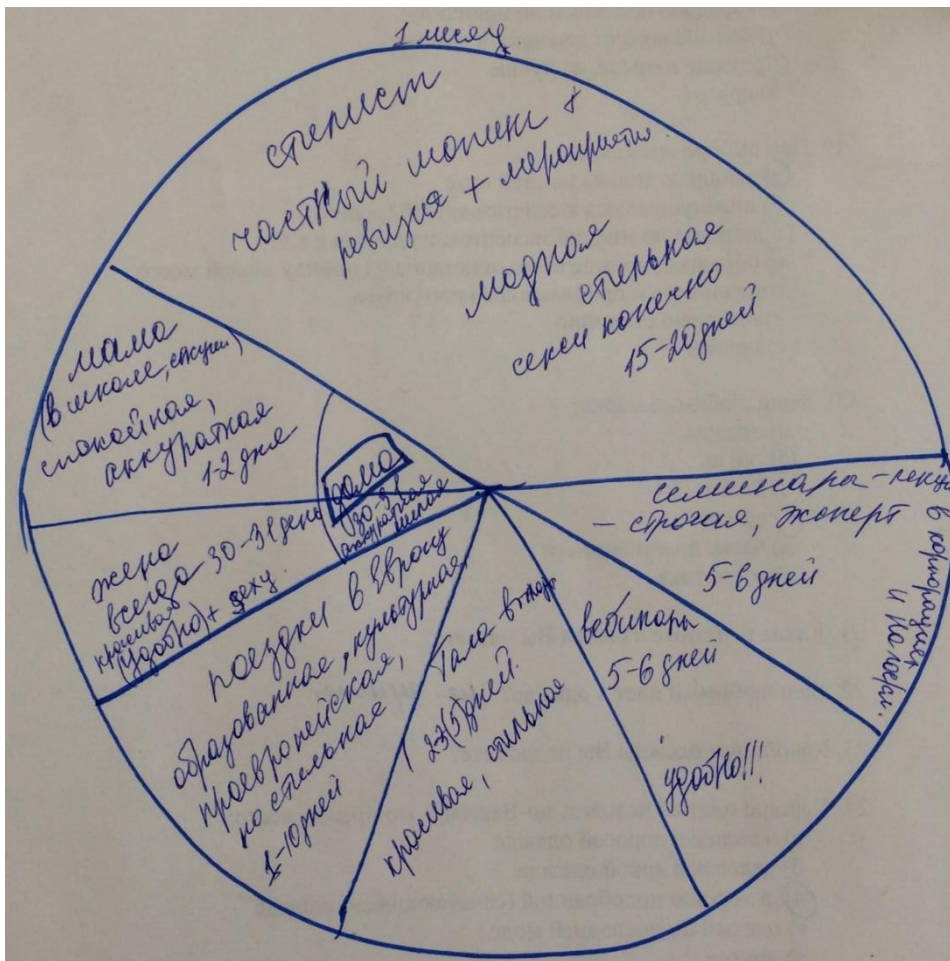 1 месяц
стилист
частный шопинг +
ревизия + мероприятия
модная
стильная
секси конечно
15-20 дней
мама
(в школе,
спокойная,
аккуратная
1-2 дня
дома
30-31
аккуратная
милая
жена
всегда - 30-31 день
красивая
(удобно) +
поездки в Европу
образованная, культурная,
проевропейская,
но стильная
1-10 дней
2-3(5) дней
красивая, стильная
вебинары
5-6 дней
удобно!!!
семинары-лекции
- строгая, эксперт
5-6 дней
в корпорациях
и